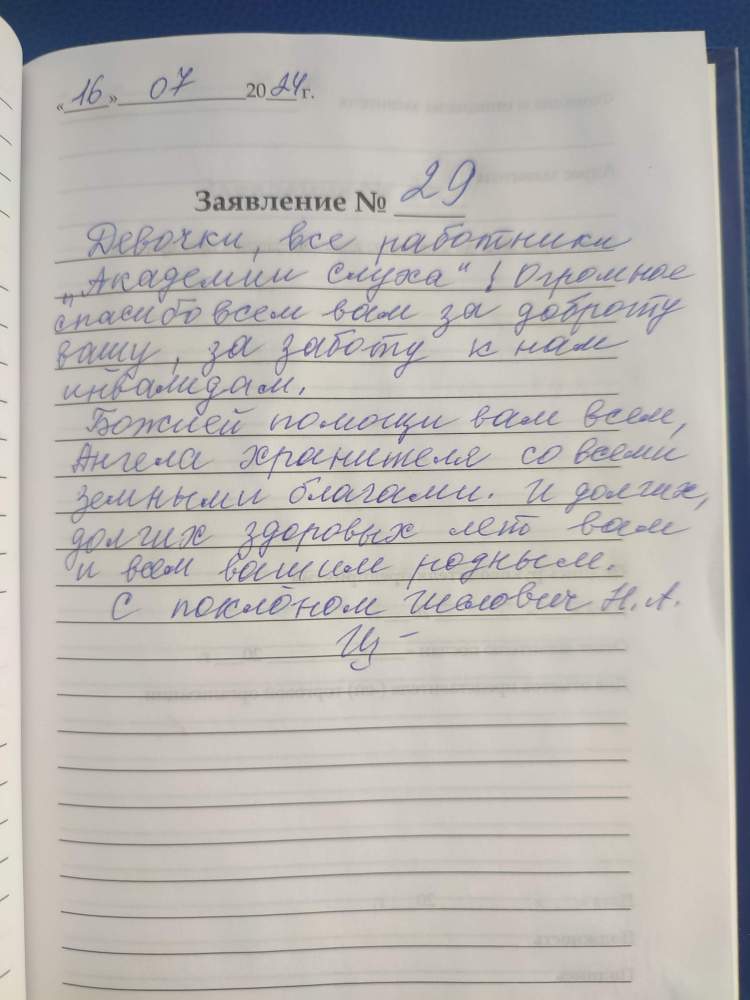 «16» 07 2024 г.
Заявление № 29
Девочки, все работники
"Академии слуха"! Огромное
спасибо всем вам за доброту
вашу, за заботу к нам
инвалидам.
Божией помощи вам всем,
Ангела хранителя со всеми
земными благами. И долгих,
долгих здоровых лет вам
и всем вашим родным.
С поклоном Н. А.